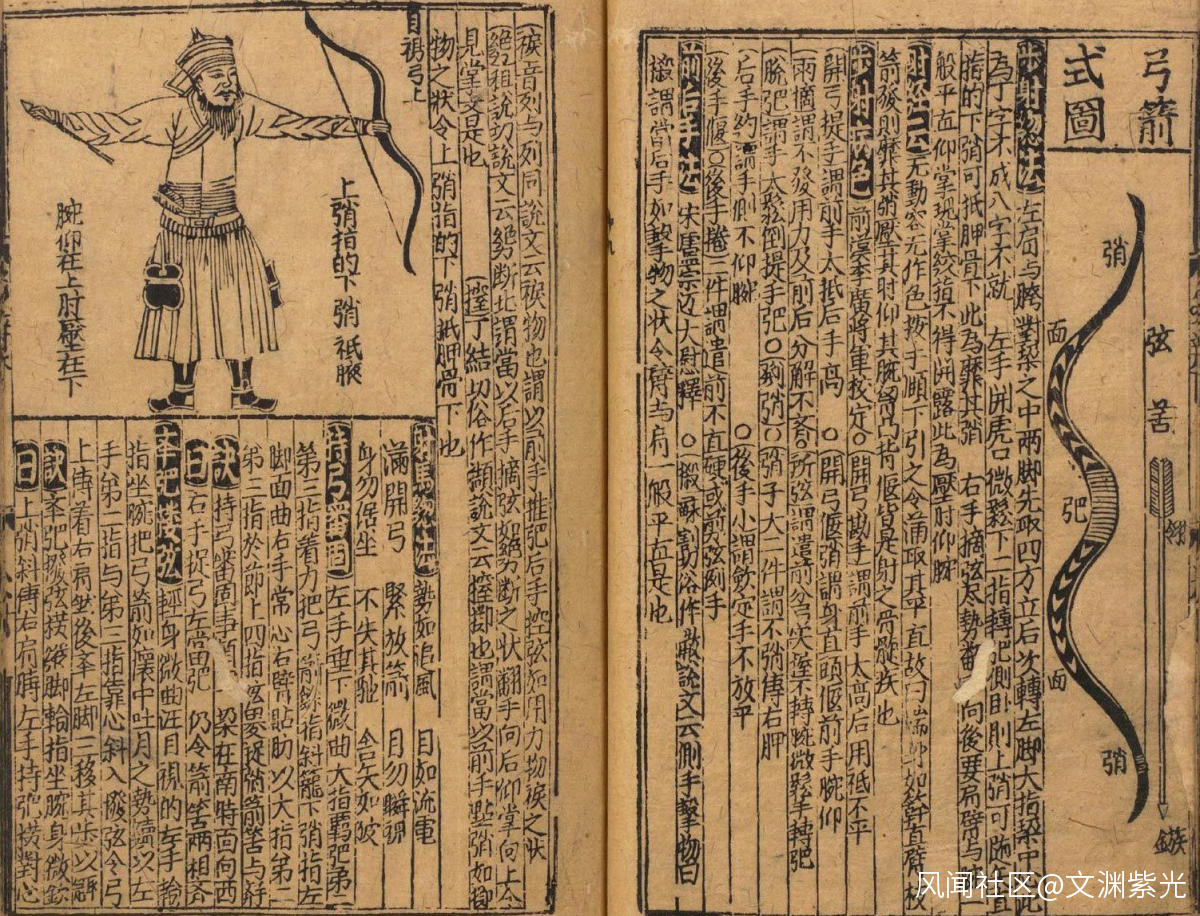 弓箭
式圖
弦
筈
翎
鏃
弰
面
弝
面
弰
步射總法 左肩与胯對垜之中两脚先取四方立后次轉左脚大指垜中此
為丁字不成八字不就 左手開虎口微鬆下二指轉弝側卧則上弰可隨直
指的下弰可抵胛骨下此為靡其弰 右手摘弦尽勢翻手向後要肩臂与
般平直仰掌現掌紋指不得開露此為壓肘仰腕
射經云 无動容无作色按手頤下引之令滿取其平直故曰端身如榦直臂如枝
箭發則靡其弰壓其肘仰其腕胸凸背偃皆是射之骨髄疾也
步射病色 前漢李廣將軍校定○開弓勘手謂前手太高后用抵不平
開弓提手謂前手太抵后手高 ○開弓偃弰謂身直頭偃前手腕仰
兩摘謂不發用力及前后分解不齐○弦謂遣前分尖握不轉腕微鬆手轉弝
脫弝謂手太鬆倒提手弝○弰○弰子大二件謂不弰傳右胛
后手約謂手側不仰腕 ○後手小謂斂定手不放平
後手偃○後手捲二件謂遣前不直硬或剪弦剜手
前后手法 宋太尉釋 ○俗作說文云側手擊物曰
謂當后手如擊物之状令臂与肩一般平直是也
音列与列同說文云物也謂以前手推弝后手控弦如用力物之状
絕租說切說文云絕断也謂當以后手摘弦如絕断之状翻手向后仰掌向上令
見掌文是也 丁結切俗作說文云也謂當以前手點弰如
物之状令上弰指的下弰抵胛骨下也
目視弓上
上弰指的下弰抵腋
腕仰在上肘壓在下
射馬總法 勢如追風 目如流電
滿開弓 緊放箭 目勿瞬視
身勿倨坐 不失其馳 舍矢如破
持弓審固 左手垂下微曲大指羈弝第二
第三指着力把弓箭餘指斜籠下弰指左
脚面曲右手當心右臂貼肋以大指第二
第三指於節上四指弦畏捉弰箭筈与
訣 持弓審固事 垜在南時面向西
曰 右手捉弓左當弝 仍令箭筈兩相齐
举弝搂弦 輕身微曲注目視的左手輪
指坐腕把弓箭如懷中吐月之勢續以左
手第二指与第三指靠心斜入撥弦令弓
上傳着右肩然後举左脚三移其步以
訣 举弝撥弦橫脚輪指坐腕身微
曰 上弰斜傳右肩膊左手持弝横對心
风闻社区@文渊紫光